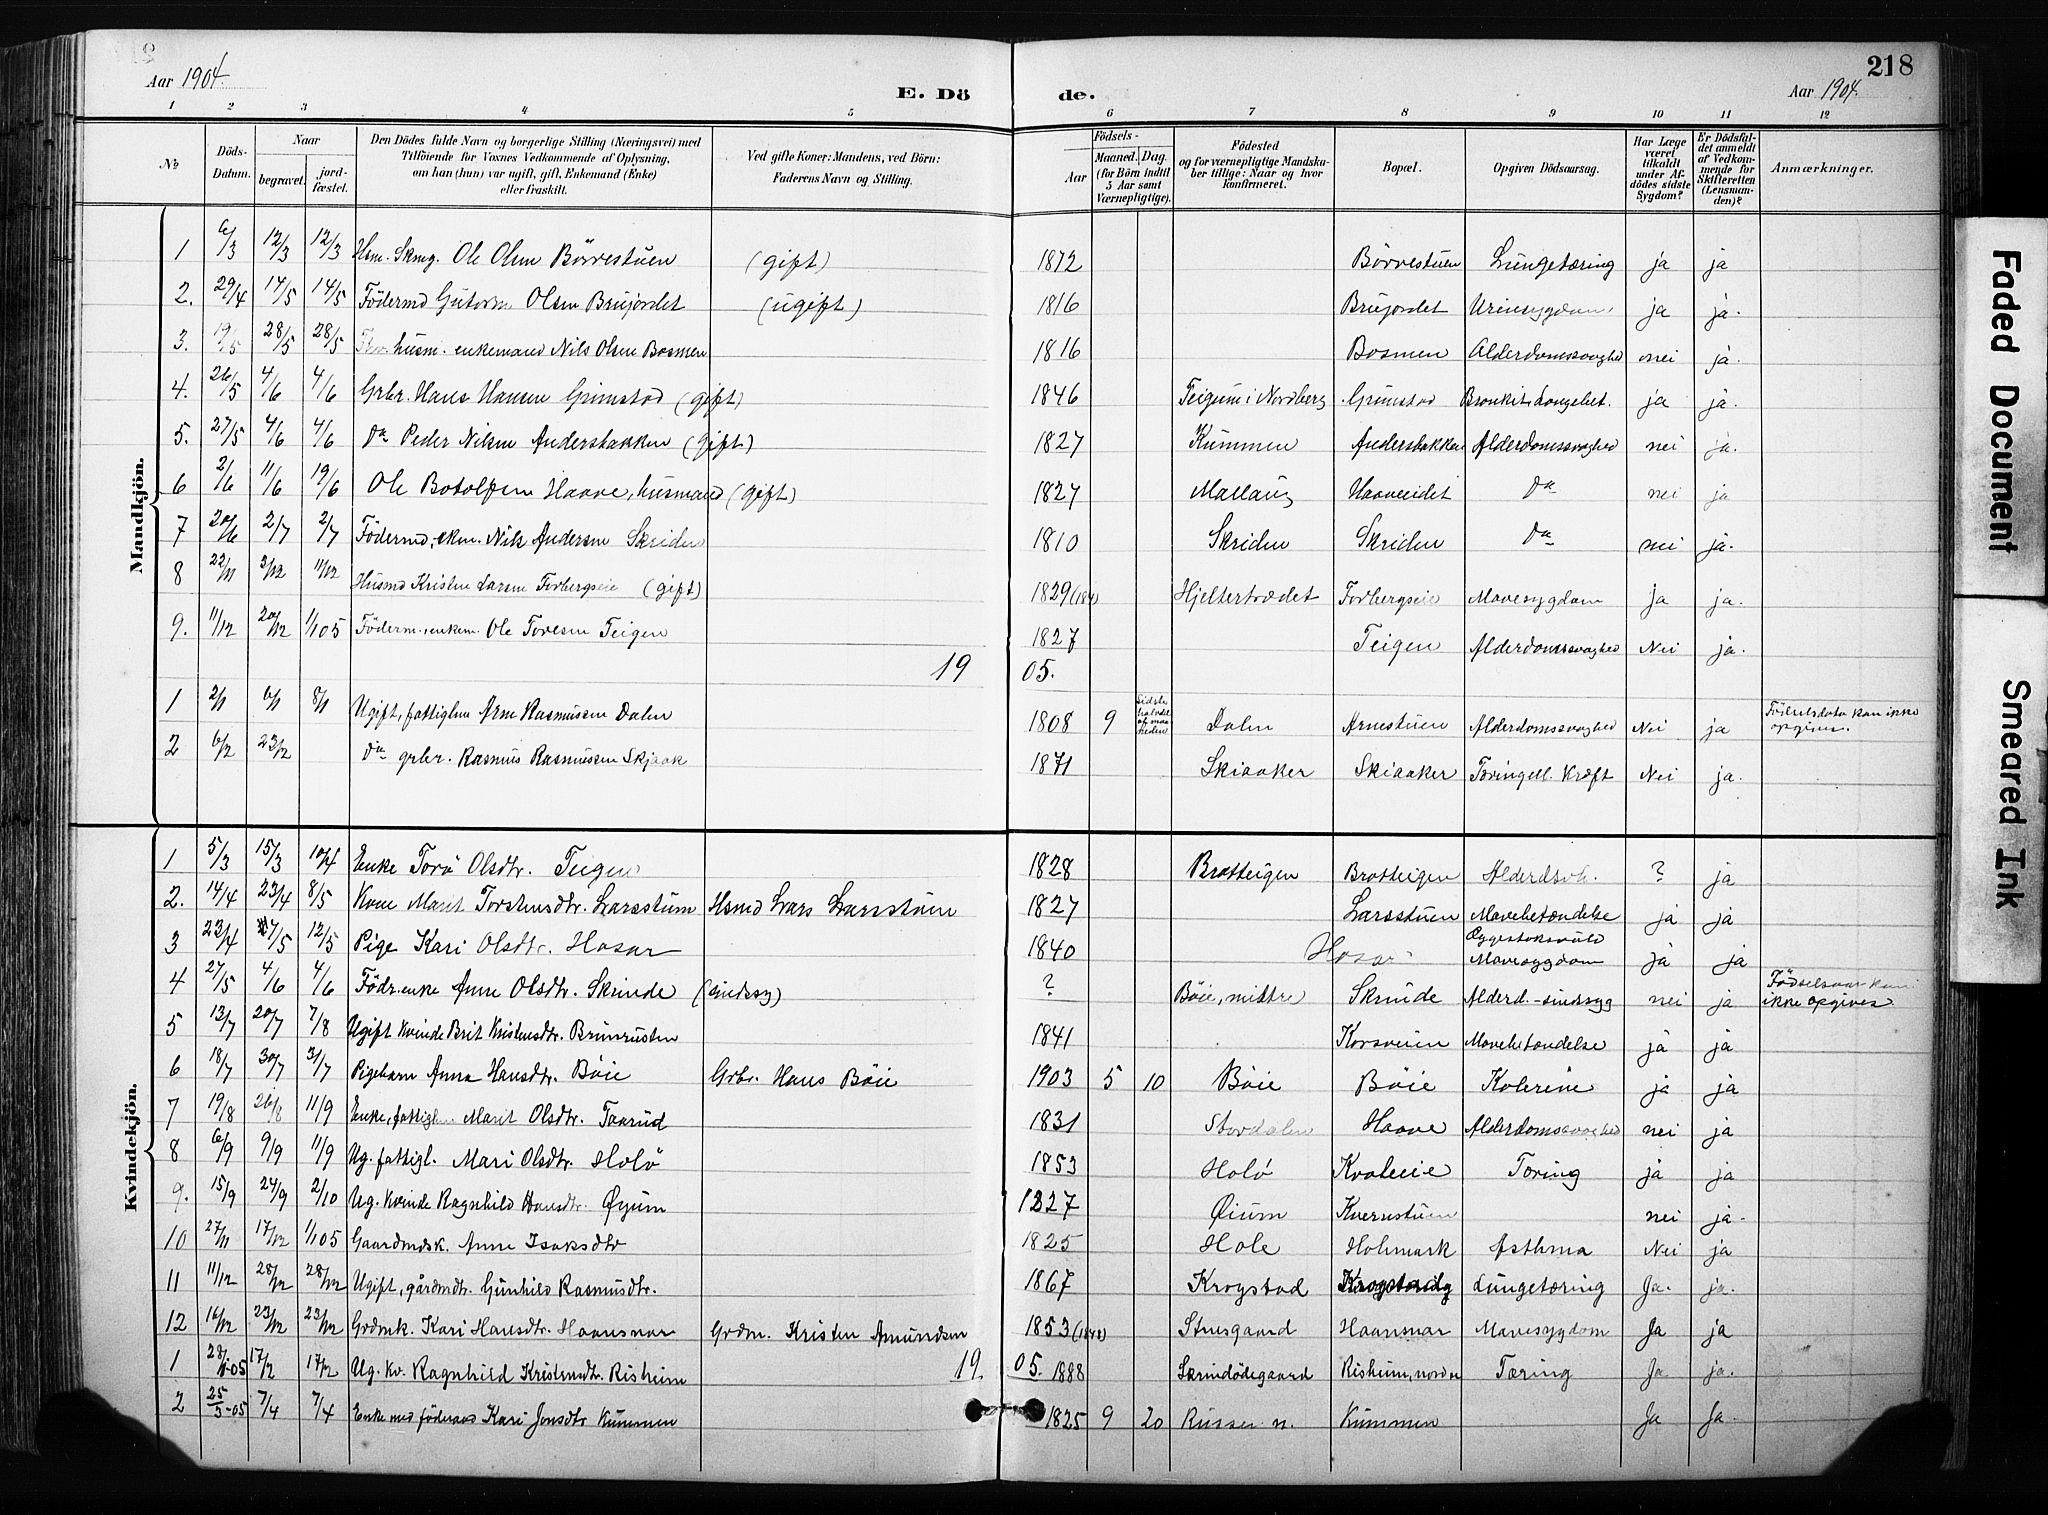 218
Aar 1904.
E. Dö
de.
Aar 1904.
1 2 3 4 5 6 7 8 9 10 11 12
№
Döds-Datum.
Naar
begravet.
jord-fæstet.
Den Dödes fulde Navn og borgerlige Stilling (Næringsvei) med
Tilföiende for Voxnes Vedkommende af Oplysning,
om han (hun) var ugift, gift, Enkemand (Enke)
eller fraskilt.
Ved gifte Koner: Mandens, ved Börn:
Faderens Navn og Stilling.
Födsels-
Aar
Maaned. Dag.
(for Börn indtil
5 Aar samt
Værnepligtige).
Födested
og for værnepligtige Mandska-
ber tillige: Naar og hvor
konfirmeret.
Bopæl.
Opgiven Dödsaarsag.
Har Læge
været
tilkaldt
under Af-
dödes sidste
Sygdom?
Er Dödsfal-
det anmeldt
af Vedkom-
mende for
Skifteretten
(Lensman-
den)?
Anmærkninger.
Mandkjön.
1 6/3 12/3 12/3 Hsm. Skmg. Ole Olsen Börrestuen (gift) 1872 Börrestuen Lungetæring ja ja
2. 29/4 14/5 14/5 Födermd Gutorm Olsen Brujordet (ugift) 1816 Brujordet Urinsygdom ja ja.
3. 19/5 28/5 28/5 husm. enkemand Nils Olsen Bosmen 1816 Bosmen Alderdomssvaghed nei ja.
4. 26/5 4/6 4/6 Grbr. Hans Hansen Grimstad (gift) 1846 Teigum i Nordberg Grimstad ja ja.
5. 27/5 4/6 4/6 Do Peder Nilsen Anderstakken (gift) 1827 Kummen Anderstakken Alderdomssvaghed nei ja.
6 2/6 11/6 19/6 Ole Botolfsen Haave, husmand (gift) 1827 Mallaug Haaveeidet Do nei ja
7 20/6 2/7 2/7 Födermd, ekm. Nils Andersen Skriden 1810 Skriden Skriden Do nei ja.
8 22/11 3/12 11/12 Husmd Kristen Larsen Forbergseie (gift) 1829 Hjeltertrædet Forbergseie Mavesygdom ja ja.
9. 11/12 20/12 1/1 05 Föderm., enkem. Ole Toresen Teigen 1827 Teigen Alderdomssvaghed Nei ja.
19 05.
1 2/1 6/1 8/1 Ugift, fattiglem Arne Rasmussen Dalen 1808 9 Sidste halvdel af maaneden Dalen Arnestuen Alderdomssvaghed Nei ja Födselsdato kan ikke opgives.
2 6/2 23/2 Do grbr. Rasmus Rasmussen Skjaak 1871 Skiaaker Skiaaker Tæring ell. Kræft Nei ja.
Kvindekjön.
1 5/3 15/3 10/4 Enke Torö Olsdtr. Teigen 1828 Bratteigen Bratteigen Alderdsvh. ? ja
2. 14/4 23/4 8/5 Kone Marit Torstensdtr. Larsstuen Hsmd Lars Larsstuen 1827 Larsstuen Mavebetændelse ja ja
3 23/4 7/5 12/5 Pige Kari Olsdtr. Hosar 1840 Hosar Eggestoksvuld Mavesygdom ja ja
4 27/5 4/6 4/6 Födr. enke Anne Olsdtr. Skrinde (sindssyg) ? Böie, mittre Skrinde Alderd.-sindssyg nei ja Födselsaar kan ikke opgives
5 13/7 20/7 7/8 Ugift Kvinde Brit Kristensdtr. Brunrusten 1841 Korsveien Mavebetændelse ja ja
6 18/7 30/7 31/7 Pigebarn Anna Hansdtr. Böie Grbr. Hans Böie 1903 5 10 Böie Böie Kolerine ja ja
7 19/8 26/8 11/9 Enke, fattiglem Marit Olsdtr. Taarud 1831 Stordalen Haave Alderdomssvaghed nei ja
8 6/9 9/9 11/9 Ug. fattigl. Mari Olsdtr. Holö 1853 Holö Kvaleeie Tæring ja ja
9. 15/9 24/9 2/10 Ug. Kvinde Ragnhild Hansdtr. Øyum 1827 Øium Kvernstuen nei ja.
10 27/11 17/12 1/1 05 Gaardmdsk. Anne Isaksdtr 1825 Hole Holemark Asthma Nei ja
11 11/12 28/12 28/12 Ugift, gårdmdtr. Gunhild Rasmusdtr. 1867 Krogstad Krogstad Lungetæring Ja. ja.
12 16/12 23/12 23/12 Grdmk. Kari Hansdtr. Haansnar Grdm. Kristen Amundsen 1853 Struesgaard Haansnar Mavesygdom Ja ja
1 28/1-05 17/2 17/2 Ug. Kv. Ragnhild Kristensdtr. Risheim 19. 05. 1888 Skrindödegaard Risheim, nordre Tæring Ja ja.
2 25/3-05 7/4 7/4 Enke med föderaad Kari Jonsdtr Kummen 1825 9 20 Russer n. Kummen Ja Ja.
Faded Document
Smeared Ink